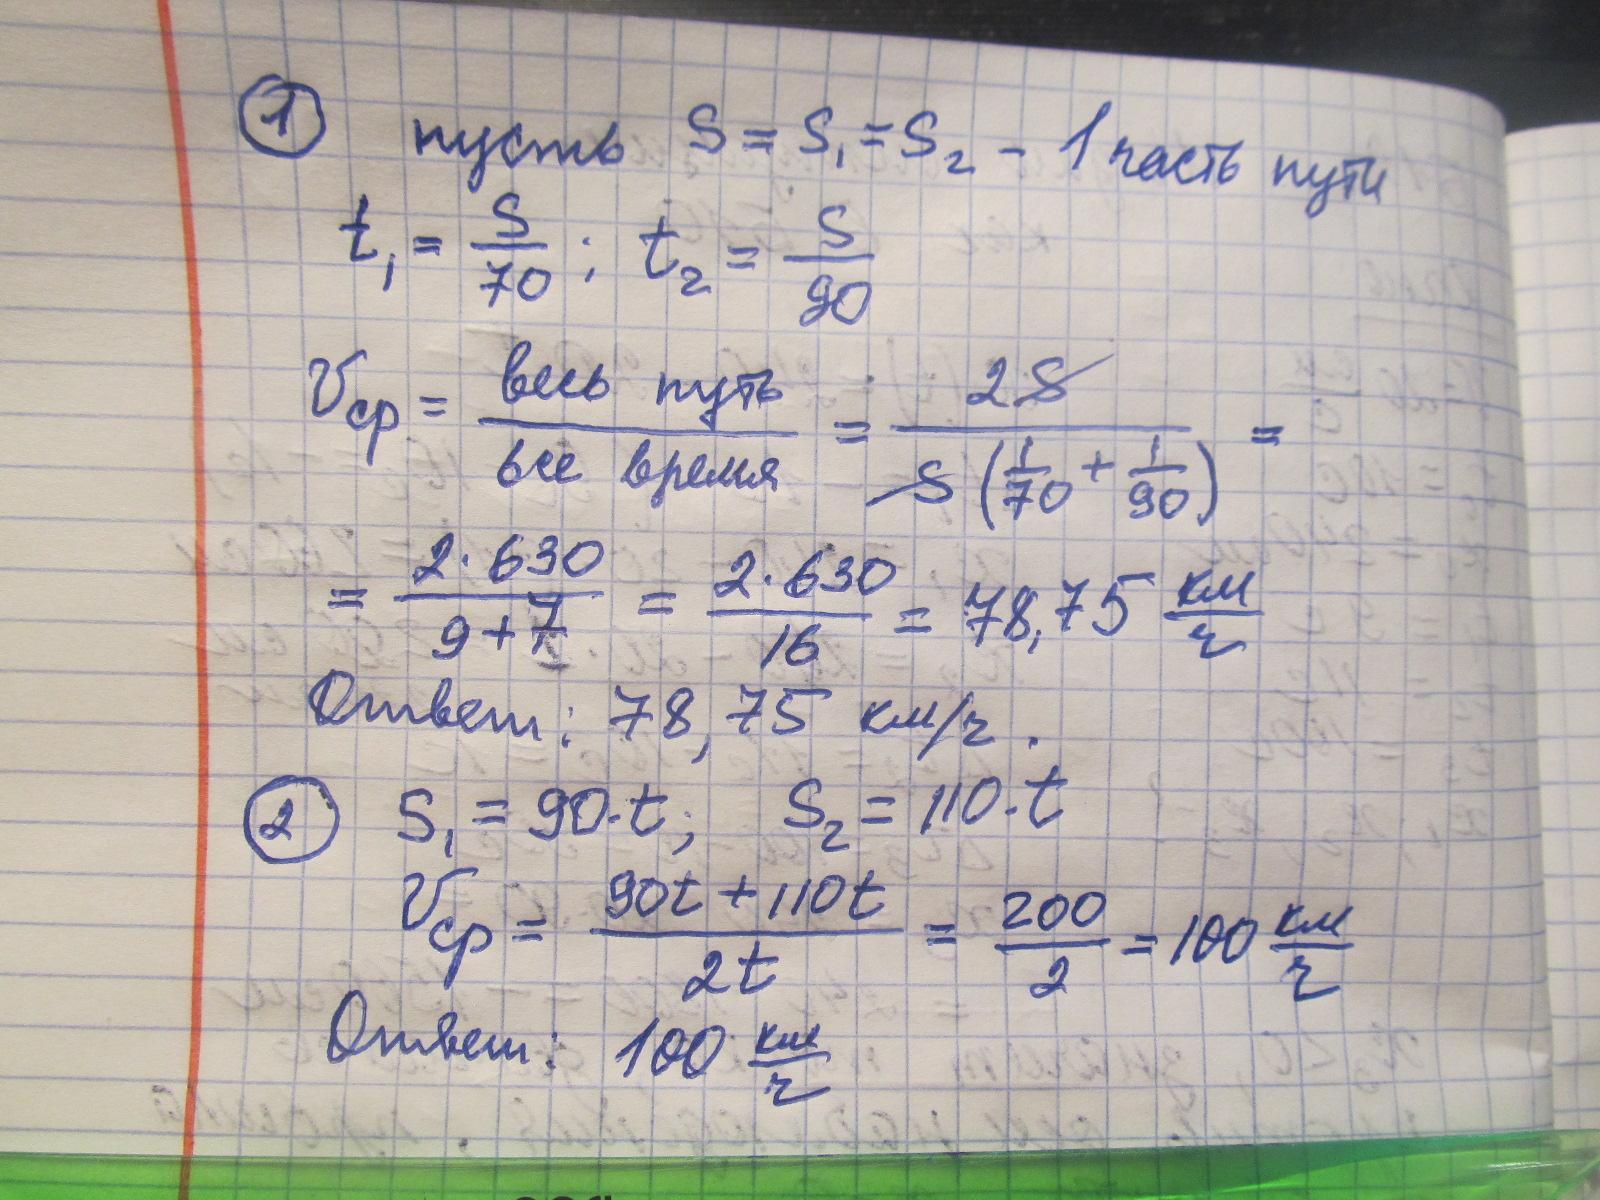 1 пусть S = S₁ = S₂ - 1 часть пути
t₁ = S/70 ; t₂ = S/90
Vср = весь путь/все время = 2S/S(1/70 + 1/90) =
= 2·630/9+7 = 2·630/16 = 78,75 км/ч
Ответ: 78,75 км/ч.
2 S₁ = 90·t; S₂ = 110·t
Vср = 90t + 110t/2t = 200/2 = 100 км/ч
Ответ: 100 км/ч